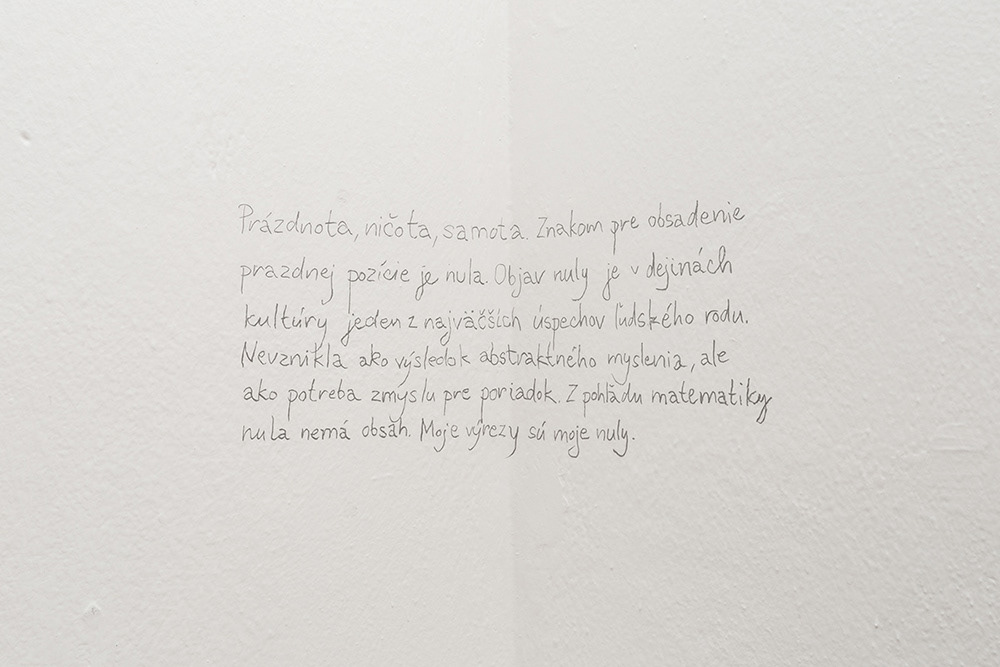 Prázdnota, ničota, samota. Znakom pre obsadenie
prazdnej pozície je nula. Objav nuly je v dejinách
kultúry jeden z najväčších úspechov ľudského rodu.
Nevznikla ako výsledok abstraktného myslenia, ale
ako potreba zmyslu pre poriadok. Z pohľadu matematiky
nula nemá obsah. Moje výrezy sú moje nuly.